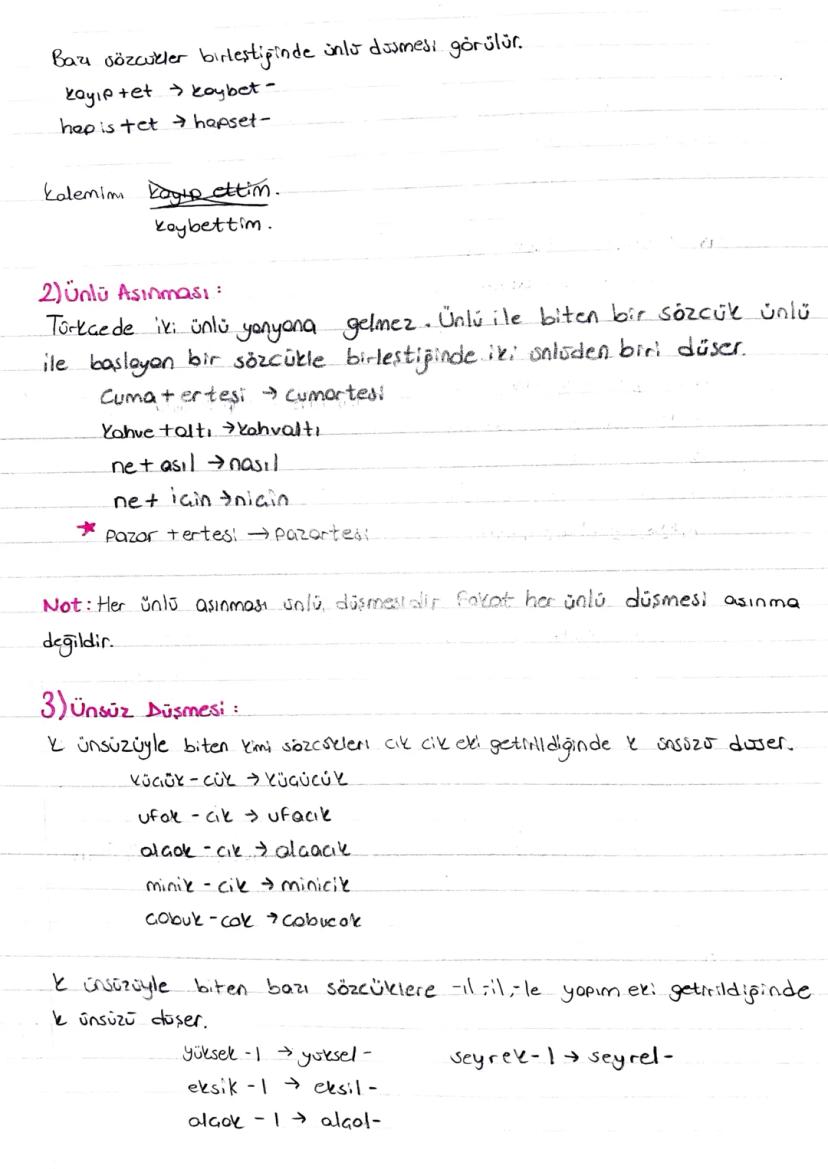 Bazı sözcükler birleştiğinde ünlü düşmesi görülür.
kayıp +et → kaybet -
hapis +et → hapset -
Kalemimi kayıp ettim.
kaybettim.
2) Ünlü Aşınması :
Türkçede iki ünlü yanyana gelmez. Ünlü ile biten bir sözcük ünlü
ile başlayan bir sözcükle birleştiğinde iki ünlüden biri düşer.
Cuma + ertesi → cumartesi
Kahve +altı → kahvaltı
ne + asıl → nasıl
ne + için → niçin
★ pazar +ertesi → pazartesi
Not: Her ünlü aşınması ünlü düşmesidir fakat her ünlü düşmesi aşınma
değildir.
3) Ünsüz Düşmesi :
k ünsüzüyle biten kimi sözcükleri cık cik eki getirildiğinde k ünsüzü düşer.
küçük - cük → küçücük
ufak - cık → ufacık
alçak - cık → alçacık
minik - cik → minicik
çabuk - cak → çabucak
k ünsüzüyle biten bazı sözcüklere -ıl -il, -le yapım eki getirildiğinde
k ünsüzü düşer.
yüksek - l → yüksel - seyrek - l → seyrel -
eksik - l → eksil -
alçak - l → alçal-